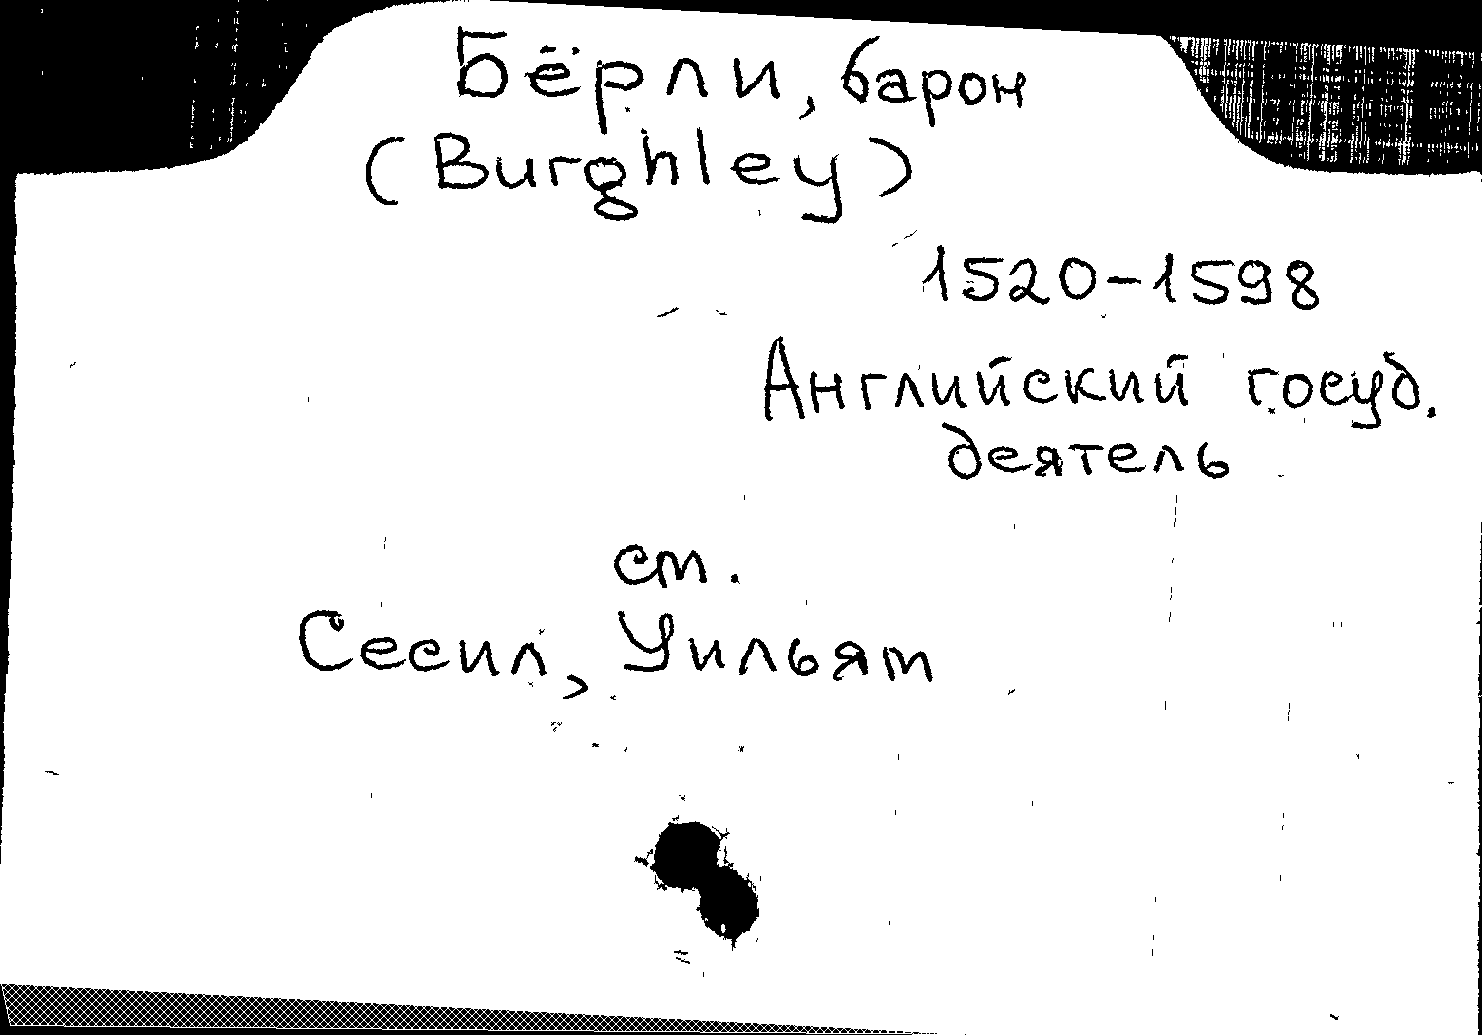 Бёрли, барон
(Burghley)
1520-1598
Английский госуд.
деятель
см.
Сесил, Уильям